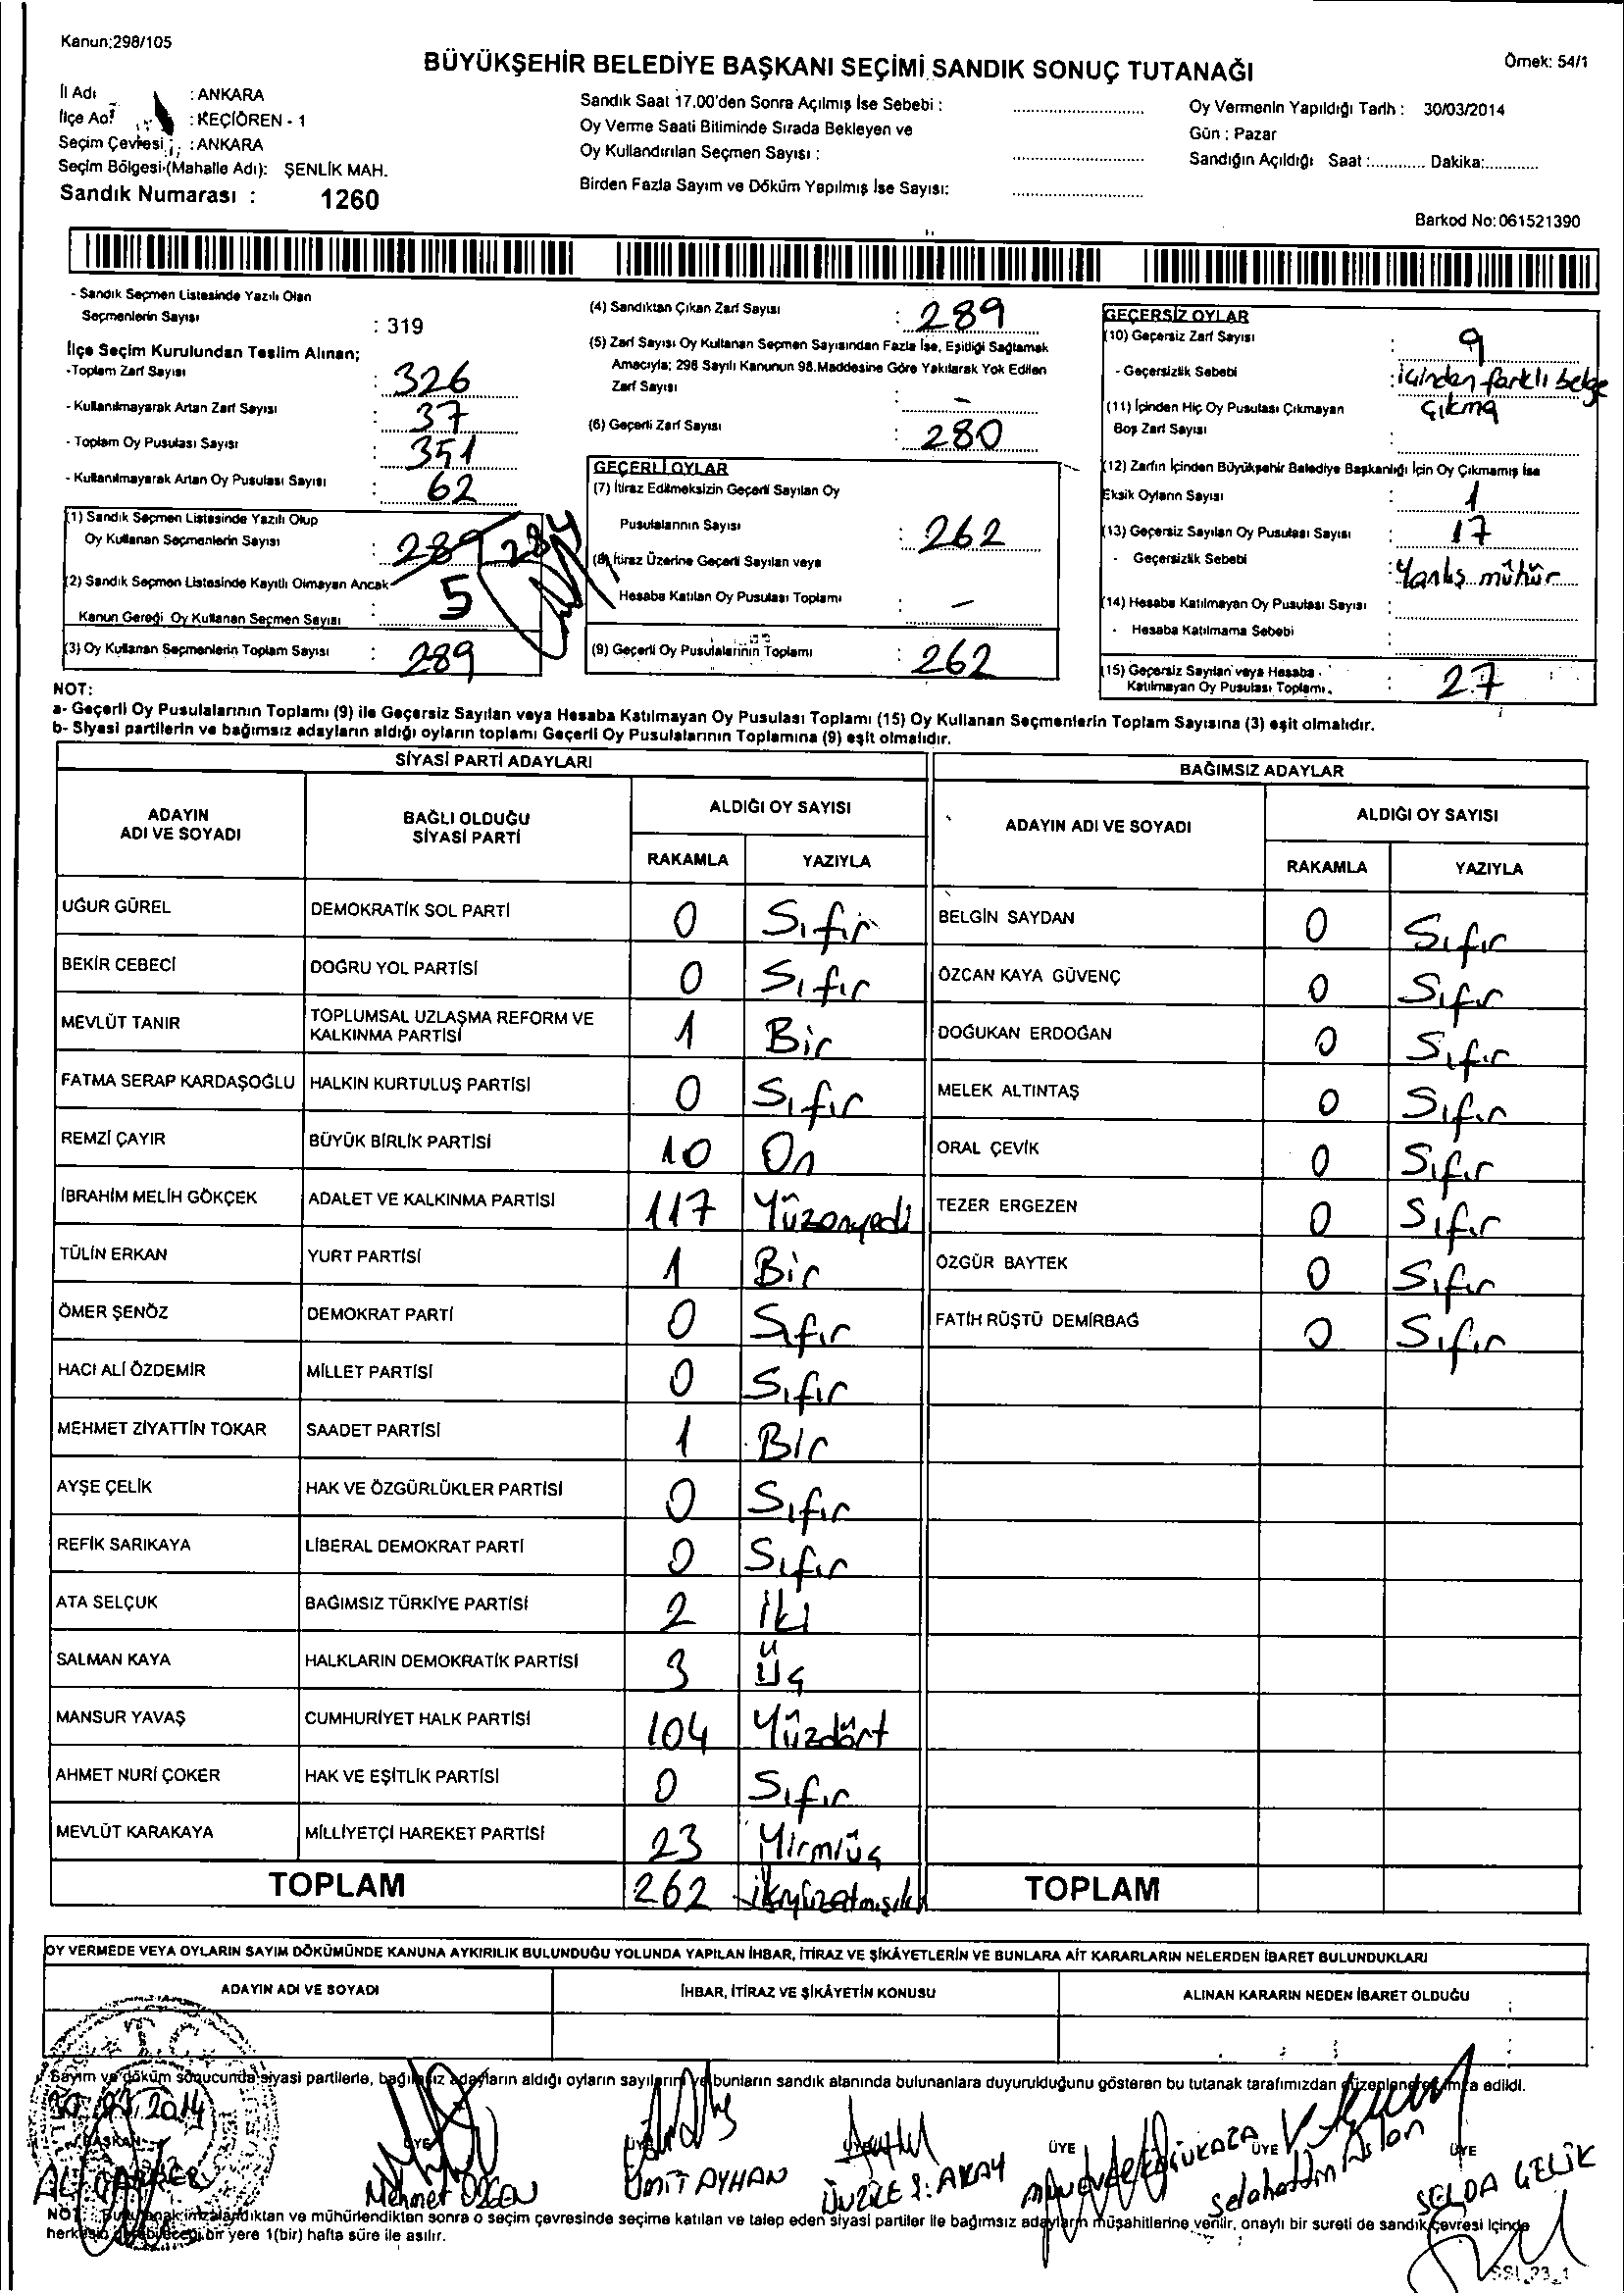 Kanun:298/105
BÜYÜKŞEHİR BELEDİYE BAŞKANI SEÇİMİ SANDIK SONUÇ TUTANAĞI
Örnek: 54/1
İl Adı : ANKARA
İlçe Adı : KEÇİÖREN - 1
Seçim Çevresi : ANKARA
Seçim Bölgesi (Mahalle Adı): ŞENLİK MAH.
Sandık Numarası : 1260
Sandık Saat 17.00'den Sonra Açılmış İse Sebebi :
Oy Verme Saati Bitiminde Sırada Bekleyen ve
Oy Kullandırılan Seçmen Sayısı :
Birden Fazla Sayım ve Döküm Yapılmış İse Sayısı:
Oy Vermenin Yapıldığı Tarih : 30/03/2014
Gün : Pazar
Sandığın Açıldığı Saat :............ Dakika:............
Barkod No: 061521390
- Sandık Seçmen Listesinde Yazılı Olan
Seçmenlerin Sayısı : 319
İlçe Seçim Kurulundan Teslim Alınan;
-Toplam Zarf Sayısı : 326
- Kullanılmayarak Artan Zarf Sayısı : 37
- Toplam Oy Pusulası Sayısı : 351
- Kullanılmayarak Artan Oy Pusulası Sayısı : 62
(1) Sandık Seçmen Listesinde Yazılı Olup
Oy Kullanan Seçmenlerin Sayısı : 289 284
(2) Sandık Seçmen Listesinde Kayıtlı Olmayan Ancak
Kanun Gereği Oy Kullanan Seçmen Sayısı : 5
(3) Oy Kullanan Seçmenlerin Toplam Sayısı : 289
(4) Sandıktan Çıkan Zarf Sayısı : 289
(5) Zarf Sayısı Oy Kullanan Seçmen Sayısından Fazla İse, Eşitliği Sağlamak
Amacıyla; 298 Sayılı Kanunun 98.Maddesine Göre Yakılarak Yok Edilen
Zarf Sayısı : -
(6) Geçerli Zarf Sayısı : 280
GEÇERLİ OYLAR
(7) İtiraz Edilmeksizin Geçerli Sayılan Oy
Pusulalarının Sayısı : 262
(8) İtiraz Üzerine Geçerli Sayılan veya
Hesaba Katılan Oy Pusulası Toplamı : -
(9) Geçerli Oy Pusulalarının Toplamı : 262
GEÇERSİZ OYLAR
(10) Geçersiz Zarf Sayısı : 9
- Geçersizlik Sebebi : içinden farklı belge
çıkma
(11) İçinden Hiç Oy Pusulası Çıkmayan
Boş Zarf Sayısı :
(12) Zarfın İçinden Büyükşehir Belediye Başkanlığı İçin Oy Çıkmamış İse
Eksik Oyların Sayısı : 1
(13) Geçersiz Sayılan Oy Pusulası Sayısı : 17
- Geçersizlik Sebebi : Yanlış mühür
(14) Hesaba Katılmayan Oy Pusulası Sayısı :
- Hesaba Katılmama Sebebi :
(15) Geçersiz Sayılan veya Hesaba
Katılmayan Oy Pusulası Toplamı. : 27
NOT:
a- Geçerli Oy Pusulalarının Toplamı (9) ile Geçersiz Sayılan veya Hesaba Katılmayan Oy Pusulası Toplamı (15) Oy Kullanan Seçmenlerin Toplam Sayısına (3) eşit olmalıdır.
b- Siyasi partilerin ve bağımsız adayların aldığı oyların toplamı Geçerli Oy Pusulalarının Toplamına (9) eşit olmalıdır.
SİYASİ PARTİ ADAYLARI
ADAYIN ADI VE SOYADI BAĞLI OLDUĞU SİYASİ PARTİ ALDIĞI OY SAYISI
RAKAMLA YAZIYLA
UĞUR GÜREL DEMOKRATİK SOL PARTİ 0 Sıfır
BEKİR CEBECİ DOĞRU YOL PARTİSİ 0 Sıfır
MEVLÜT TANIR TOPLUMSAL UZLAŞMA REFORM VE KALKINMA PARTİSİ 1 Bir
FATMA SERAP KARDAŞOĞLU HALKIN KURTULUŞ PARTİSİ 0 Sıfır
REMZİ ÇAYIR BÜYÜK BİRLİK PARTİSİ 10 On
İBRAHİM MELİH GÖKÇEK ADALET VE KALKINMA PARTİSİ 117 Yüzonyedi
TÜLİN ERKAN YURT PARTİSİ 1 Bir
ÖMER ŞENÖZ DEMOKRAT PARTİ 0 Sıfır
HACI ALİ ÖZDEMİR MİLLET PARTİSİ 0 Sıfır
MEHMET ZİYATTİN TOKAR SAADET PARTİSİ 1 Bir
AYŞE ÇELİK HAK VE ÖZGÜRLÜKLER PARTİSİ 0 Sıfır
REFİK SARIKAYA LİBERAL DEMOKRAT PARTİ 0 Sıfır
ATA SELÇUK BAĞIMSIZ TÜRKİYE PARTİSİ 2 İki
SALMAN KAYA HALKLARIN DEMOKRATİK PARTİSİ 3 Üç
MANSUR YAVAŞ CUMHURİYET HALK PARTİSİ 104 Yüzdört
AHMET NURİ ÇOKER HAK VE EŞİTLİK PARTİSİ 0 Sıfır
MEVLÜT KARAKAYA MİLLİYETÇİ HAREKET PARTİSİ 23 Yirmiüç
TOPLAM 262 ikiyüzatmışiki
BAĞIMSIZ ADAYLAR
ADAYIN ADI VE SOYADI ALDIĞI OY SAYISI
RAKAMLA YAZIYLA
BELGİN SAYDAN 0 Sıfır
ÖZCAN KAYA GÜVENÇ 0 Sıfır
DOĞUKAN ERDOĞAN 0 Sıfır
MELEK ALTINTAŞ 0 Sıfır
ORAL ÇEVİK 0 Sıfır
TEZER ERGEZEN 0 Sıfır
ÖZGÜR BAYTEK 0 Sıfır
FATİH RÜŞTÜ DEMİRBAĞ 0 Sıfır
TOPLAM
OY VERMEDE VEYA OYLARIN SAYIM DÖKÜMÜNDE KANUNA AYKIRILIK BULUNDUĞU YOLUNDA YAPILAN İHBAR, İTİRAZ VE ŞİKÂYETLERİN VE BUNLARA AİT KARARLARIN NELERDEN İBARET BULUNDUKLARI
ADAYIN ADI VE SOYADI İHBAR, İTİRAZ VE ŞİKÂYETİN KONUSU ALINAN KARARIN NEDEN İBARET OLDUĞU
T.C.
Sayım ve döküm sonucunda siyasi partilerle, bağımsız adayların aldığı oyların sayılarını ve bunların sandık alanında bulunanlara duyurulduğunu gösteren bu tutanak tarafımızdan düzenlenerek imza edildi.
30.03.2014
BAŞKAN ÜYE ÜYE ÜYE ÜYE ÜYE ÜYE
Mehmet ÖZGEN ÜMİT AYHAN Selahattin Aslan SELDA ÇELİK
NOT: Bu tutanak imzalandıktan ve mühürlendikten sonra o seçim çevresinde seçime katılan ve talep eden siyasi partiler ile bağımsız adayların müşahitlerine verilir, onaylı bir sureti de sandık çevresi içinde
herkesin görebileceği bir yere 1(bir) hafta süre ile asılır.
SSI_23_1